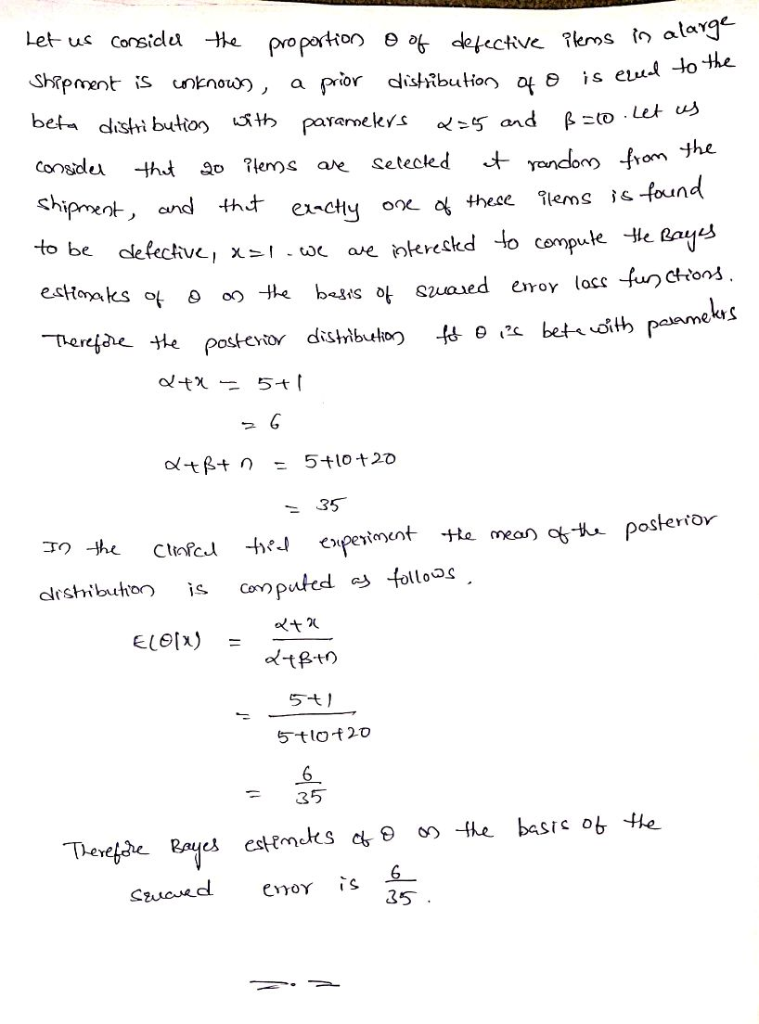 Let us consider the proportion θ of defective items in a large
shipment is unknown, a prior distribution of θ is equal to the
beta distribution with parameters α=5 and β=10. Let us
consider that 20 items are selected at random from the
shipment, and that exactly one of these items is found
to be defective, x=1. we are interested to compute the Bayes
estimates of θ on the basis of squared error loss functions.
Therefore the posterior distribution for θ is beta with parameters
α+x = 5+1
= 6
α+β+n = 5+10+20
= 35
In the clinical trial experiment the mean of the posterior
distribution is computed as follows.
E(θ|x) = α+x / α+β+n
= 5+1 / 5+10+20
= 6 / 35
Therefore Bayes estimates of θ on the basis of the
squared error is 6/35.